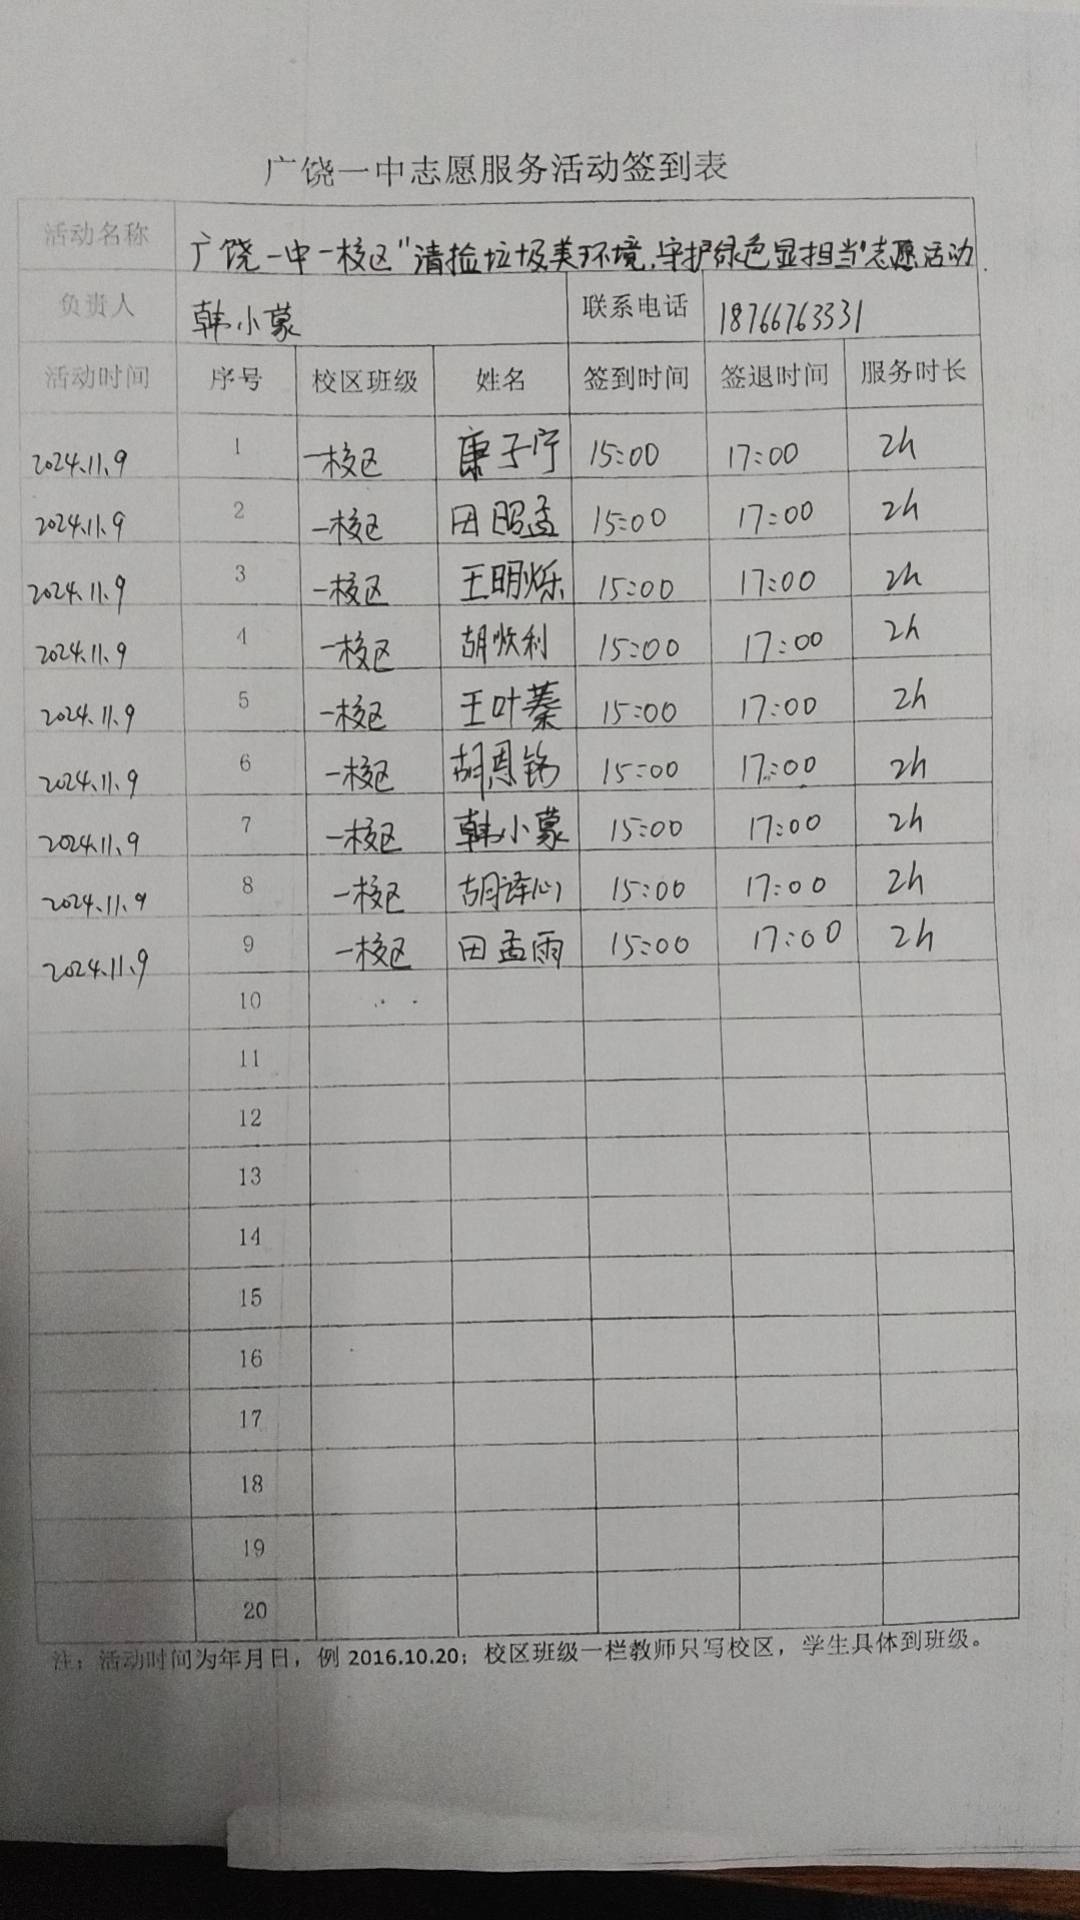 广饶一中志愿服务活动签到表
活动名称 广饶一中一校区"清捡垃圾美环境,守护绿色显担当"志愿活动
负责人 韩小蒙 联系电话 18766763331
活动时间 序号 校区班级 姓名 签到时间 签退时间 服务时长
2024.11.9 1 一校区 康子宁 15:00 17:00 2h
2024.11.9 2 一校区 田昭孟 15:00 17:00 2h
2024.11.9 3 一校区 王明烁 15:00 17:00 2h
2024.11.9 4 一校区 15:00 17:00 2h
2024.11.9 5 一校区 王叶蓁 15:00 17:00 2h
2024.11.9 6 一校区 胡恩铭 15:00 17:00 2h
2024.11.9 7 一校区 韩小蒙 15:00 17:00 2h
2024.11.9 8 一校区 胡译心 15:00 17:00 2h
2024.11.9 9 一校区 田孟雨 15:00 17:00 2h
10
11
12
13
14
15
16
17
18
19
20
注：活动时间为年月日，例 2016.10.20；校区班级一栏教师只写校区，学生具体到班级。